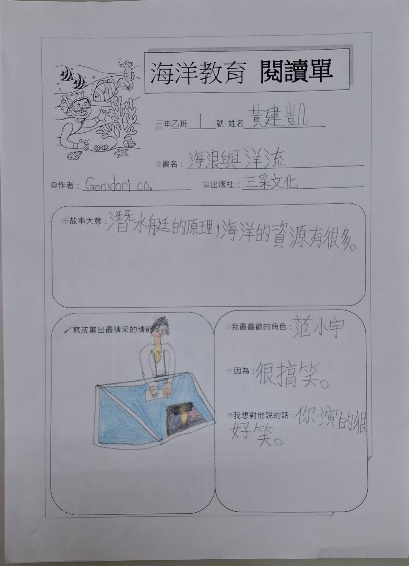 海洋教育 閱讀單
三年乙班 1 號 姓名 黃建凱
書名：海浪與洋流
作者：Gomdori co. 出版社：三采文化
故事大意：潛水艇的原理，海洋的資源有很多。
寫或畫出最精采的情節
我最喜歡的角色：范小宇
因為：
很搞笑。
我想對他說的話：你演的很
好笑。